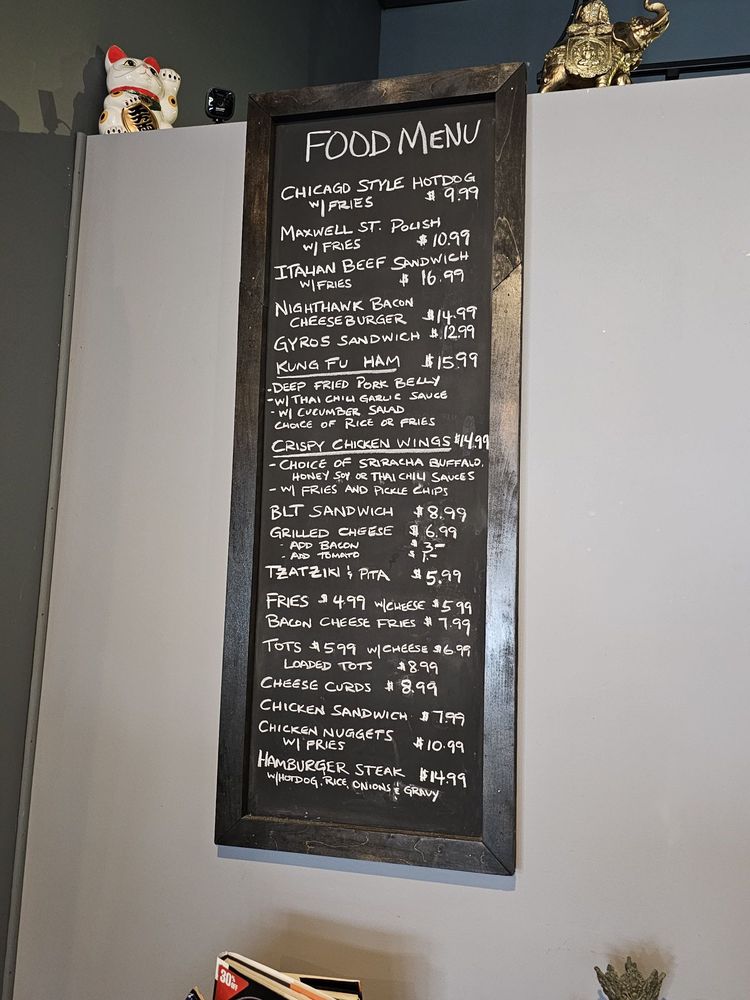 FOOD MENU
CHICAGO STYLE HOTDOG
W/ FRIES $ 9.99
MAXWELL ST. POLISH
W/ FRIES $ 10.99
ITALIAN BEEF SANDWICH
W/ FRIES $ 16.99
NIGHTHAWK BACON
CHEESEBURGER $14.99
GYROS SANDWICH $ 12.99
KUNG FU HAM $15.99
-DEEP FRIED PORK BELLY
-W/ THAI CHILI GARLIC SAUCE
- W/ CUCUMBER SALAD
CHOICE OF RICE OR FRIES
CRISPY CHICKEN WINGS $14.99
- CHOICE OF SRIRACHA BUFFALO,
HONEY SOY OR THAI CHILI SAUCES
- W/ FRIES AND PICKLE CHIPS
BLT SANDWICH $8.99
GRILLED CHEESE $ 6.99
- ADD BACON $ 3.-
- ADD TOMATO $ 1.-
TZATZIKI & PITA $5.99
FRIES $4.99 W/CHEESE $5.99
BACON CHEESE FRIES $ 7.99
TOTS $5.99 W/CHEESE $6.99
LOADED TOTS $8.99
CHEESE CURDS $ 8.99
CHICKEN SANDWICH $ 7.99
CHICKEN NUGGETS
W/ FRIES $10.99
HAMBURGER STEAK $14.99
W/HOTDOG, RICE, ONIONS & GRAVY
30% OFF